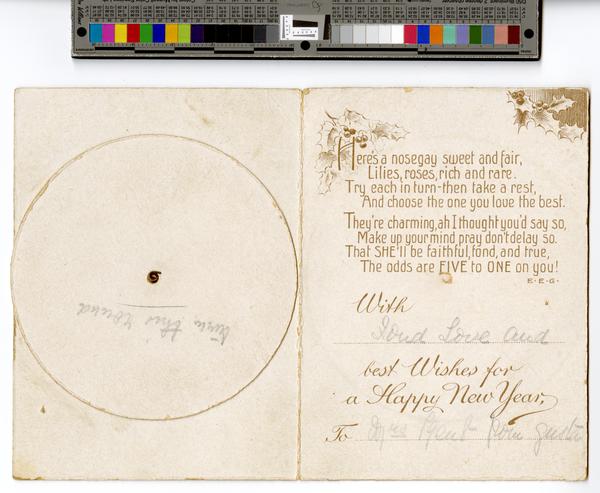 turn this round
Here's a nosegay sweet and fair,
Lilies, roses, rich and rare.
Try each in turn-then take a rest,
And choose the one you love the best.
They're charming, ah I thought you'd say so,
Make up your mind pray don't delay so.
That SHE'll be faithful, fond, and true,
The odds are FIVE to ONE on you!
E.E.G.
With
Fond Love and
best Wishes for
a Happy New Year,
To Mrs from